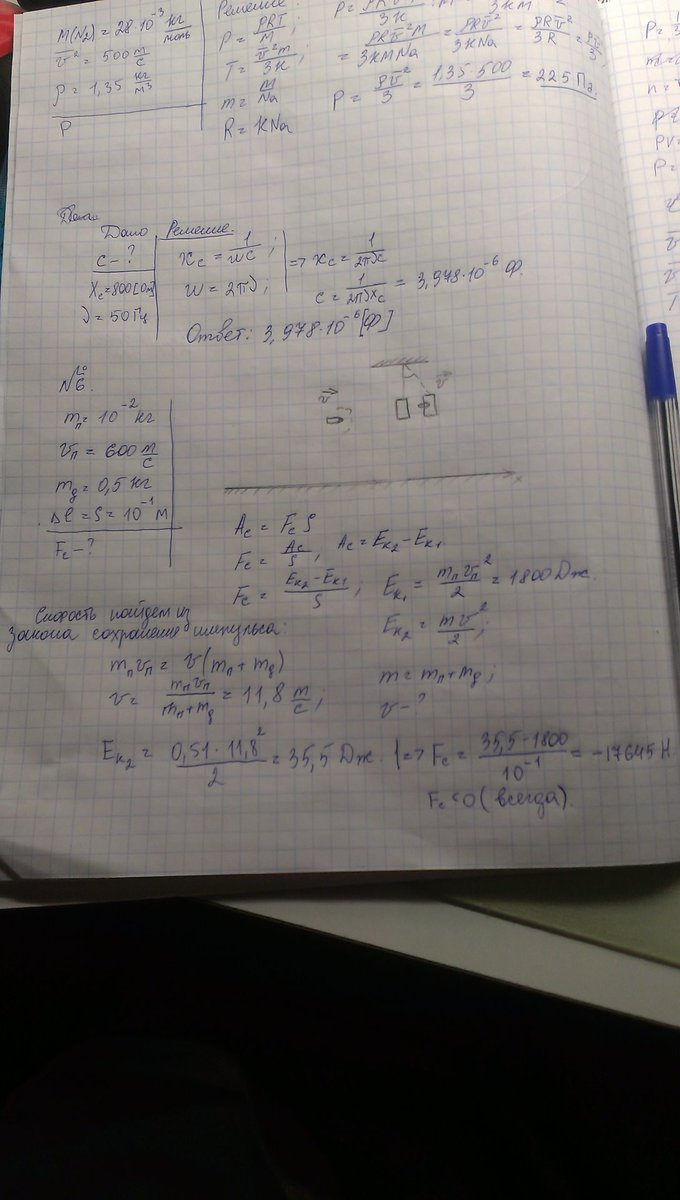 Решение:
M(N₂) = 28·10⁻³ кг/моль
v̄² = 500 м/с
ρ = 1,35 кг/м³
P
P = ρRT/M;
T = v̄²m/3k;
m = M/Na
R = kNa
= ρRv̄²M/3kMNa = ρRv̄²/3kNa = ρRv̄²/3R = ρv̄²/3
P = ρv̄²/3 = 1,35·500/3 = 225 Па.
Дано Решение:
C - ?
Xc = 800 [Ом]
ν = 50 Гц
xc = 1/wc;
w = 2πν;
=> xc = 1/2πνc
c = 1/2πνxc = 3,978·10⁻⁶ Ф.
Ответ: 3,978·10⁻⁶ [Ф]
№6.
mп = 10⁻² кг
vп = 600 м/с
mд = 0,5 кг
Δl = S = 10⁻¹ м
Fc - ?
v⃗
v⃗
x
Ac = Fc S
Fc = Ac/S, Ac = Eк2 - Eк1
Fc = Eк2 - Eк1/S; Eк1 = mпvп²/2 = 1800 Дж.
Eк2 = mv²/2;
Скорость найдем из
закона сохранения импульса:
mпvп = v(mп + mд)
m = mп + mд;
v = mпvп/mп + mд = 11,8 м/с;
v - ?
Eк2 = 0,51·11,8²/2 = 35,5 Дж. |=> Fc = 35,5 - 1800/10⁻¹ = -17645 Н
Fc < 0 (всегда).